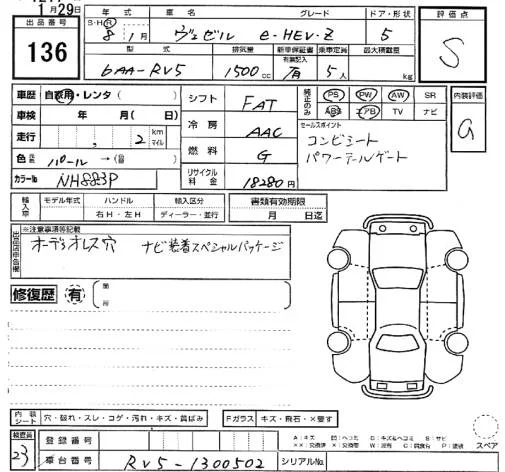 1月29日
出品番号
136
年式 車名 グレード ドア・形状
S・H・R 8年 1月 ヴェゼル e-HEV-Z 5
型式 排気量 新車保証書 乗車定員 最大積載量
6AA-RV5 1500cc 有無記入 有 5人 kg
評価点
S
車歴 自家用・レンタ( )
車検 年 月( 日)
走行 , 2 km マイル
色 パール→( )
カラーNo NH883P
シフト FAT
冷房 AAC
燃料 G
リサイクル料金 18280円
純正のみ PS PW AW SR
ABS エアB TV ナビ
セールスポイント
コンビシート
パワーテールゲート
内装評価
G
輸入車 モデル年式 ハンドル 輸入区分 書類有効期限
右H・左H ディーラー・並行 月 日迄
出品店申告欄 ※注意事項等記載
オーディオレス穴 ナビ装着スペシャルパッケージ
修復歴 有 箇所
内装シート 穴・破れ・スレ・コゲ・汚れ・キズ・黄ばみ Fガラス キズ・飛石・×要す
検査員 23
登録番号
車台番号 RV5-1300502 シリアルNo.
スペア